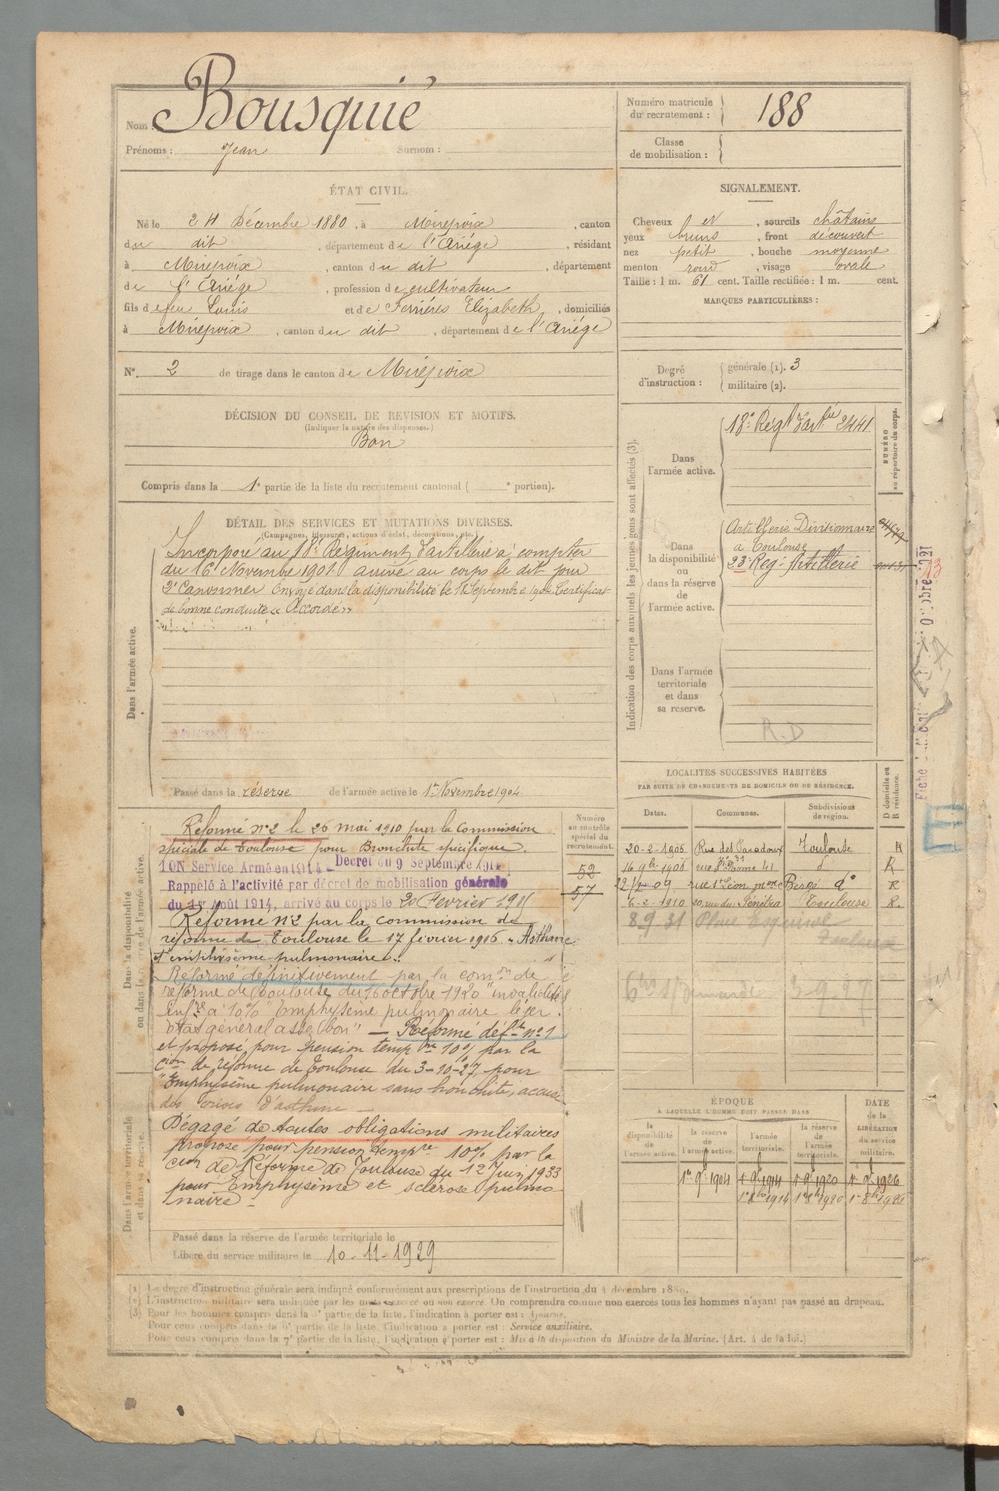 Nom : Bousquié
Prénoms : Jean Surnom :
Numéro matricule du recrutement : 188
Classe de mobilisation :
ÉTAT CIVIL.
Né le 24 Décembre 1880, à Mirepoix, canton
du dit, département de l'Ariège, résidant
à Mirepoix, canton du dit, département
de l'Ariège, profession de cultivateur
fils de feu Louis et de Ferriéres Elizabeth, domiciliés
à Mirepoix, canton du dit, département de l'Ariége
N° 2 de tirage dans le canton de Mirepoix
SIGNALEMENT.
Cheveux et, sourcils châtains
yeux bruns, front découvert
nez petit, bouche moyenne
menton rond, visage ovale
Taille : 1 m. 61 cent. Taille rectifiée : 1 m. cent.
MARQUES PARTICULIÈRES :
Degré d'instruction : générale (1). 3
militaire (2).
DÉCISION DU CONSEIL DE REVISION ET MOTIFS.
(Indiquer la nature des dispenses.)
Bon
Compris dans la 1e partie de la liste du recrutement cantonal ( e portion).
DÉTAIL DES SERVICES ET MUTATIONS DIVERSES.
(Campagnes, blessures, actions d'éclat, décorations, etc.)
Dans l'armée active.
Incorporé au 18e Régiment d'artillerie à compter
du 16 Novembre 1901 arrivé au corps le dit jour
2e Canonnier Envoyé dans la disponibilité le 18 Septembre 1904 Certificat
de bonne conduite « Accordé »
Passé dans la réserve de l'armée active le 1er Novembre 1904
Indication des corps auxquels les jeunes gens sont affectés (3).
NUMÉRO au répertoire du corps.
Dans l'armée active.
18e Régt d'artie 2441
Dans la disponibilité ou dans la réserve de l'armée active.
Artillerie Divisionnaire
a Toulouse
23e Reg. Artillerie
Dans l'armée territoriale et dans sa reserve.
R.D
Dans la disponibilité ou dans la réserve de l'armée active.
Réformé n°2 le 26 mai 1910 par la Commission
spéciale de Toulouse pour Bronchite spécifique.
ION Service Armé en 1914 - Décret du 9 Septembre 1914
Rappelé à l'activité par décret de mobilisation générale
du 1er Août 1914, arrivé au corps le 20 Février 1915
Réformé n°2 par la commission de
réforme de Toulouse le 17 février 1916 « Asthme
et emphysème pulmonaire ».
Réformé définitivement par la comon de
réforme de Toulouse du 16 octobre 1920 "invalidité
infre à 10% Emphysème pulmonaire léger.
état général assez bon" — Réformé déftt n°1
et proposé pour pension tempre 10% par la
Cion de réforme de Toulouse du 3-10-27 pour
"Emphysème pulmonaire sans bronchite, accuse
des crises d'asthme —
Dans l'armée territoriale et dans sa réserve.
Dégagé de toutes obligations militaires
proposé pour pension tempre 10% par la
Cion de Réforme de Toulouse du 12 Juin 1933
pour Emphysème et sclérose pulmo
naire -
Passé dans la réserve de l'armée territoriale le
Libéré du service militaire le 10-11-1929
Numéro au contrôle spécial du recrutement.
52
57
LOCALITES SUCCESSIVES HABITÉES
PAR SUITE DE CHANGEMENTS DE DOMICILE OU DE RÉSIDENCE.
Dates. Communes. Subdivisions de région. D domicile ou R résidence.
20-2-1906 Rue des Paradoux Toulouse R
16 9bre 1908 41 do R
22 09 rue St Léon do R
6-2-1910 Toulouse R.
8 9 31 Place Esquirol Toulouse
3-9-27
ÉPOQUE
À LAQUELLE L'HOMME DOIT PASSER DANS
la disponibilité de l'armée active. la réserve de l'armée active. l'armée territoriale. la réserve de l'armée territoriale. DATE de la LIBÉRATION du service militaire.
1er 9bre 1904 1er 9bre 1914 1er 9bre 1920 1er 9bre 1926
1er 8bre 1914 1er 8bre 1920 1er 8bre 1926
(1) Le degré d'instruction générale sera indiqué conformément aux prescriptions de l'instruction du 4 décembre 1889.
(2) L'instruction militaire sera indiquée par les mots exercé ou non exercé. On comprendra comme non exercés tous les hommes n'ayant pas passé au drapeau.
(3) Pour les hommes compris dans la partie de la liste, l'indication à porter est :
Pour ceux compris dans la partie de la liste, l'indication à porter est : Service auxiliaire.
Pour ceux compris dans la 7e partie de la liste, l'indication à porter est : Mis à la disposition du Ministre de la Marine. (Art. 4 de la loi.)